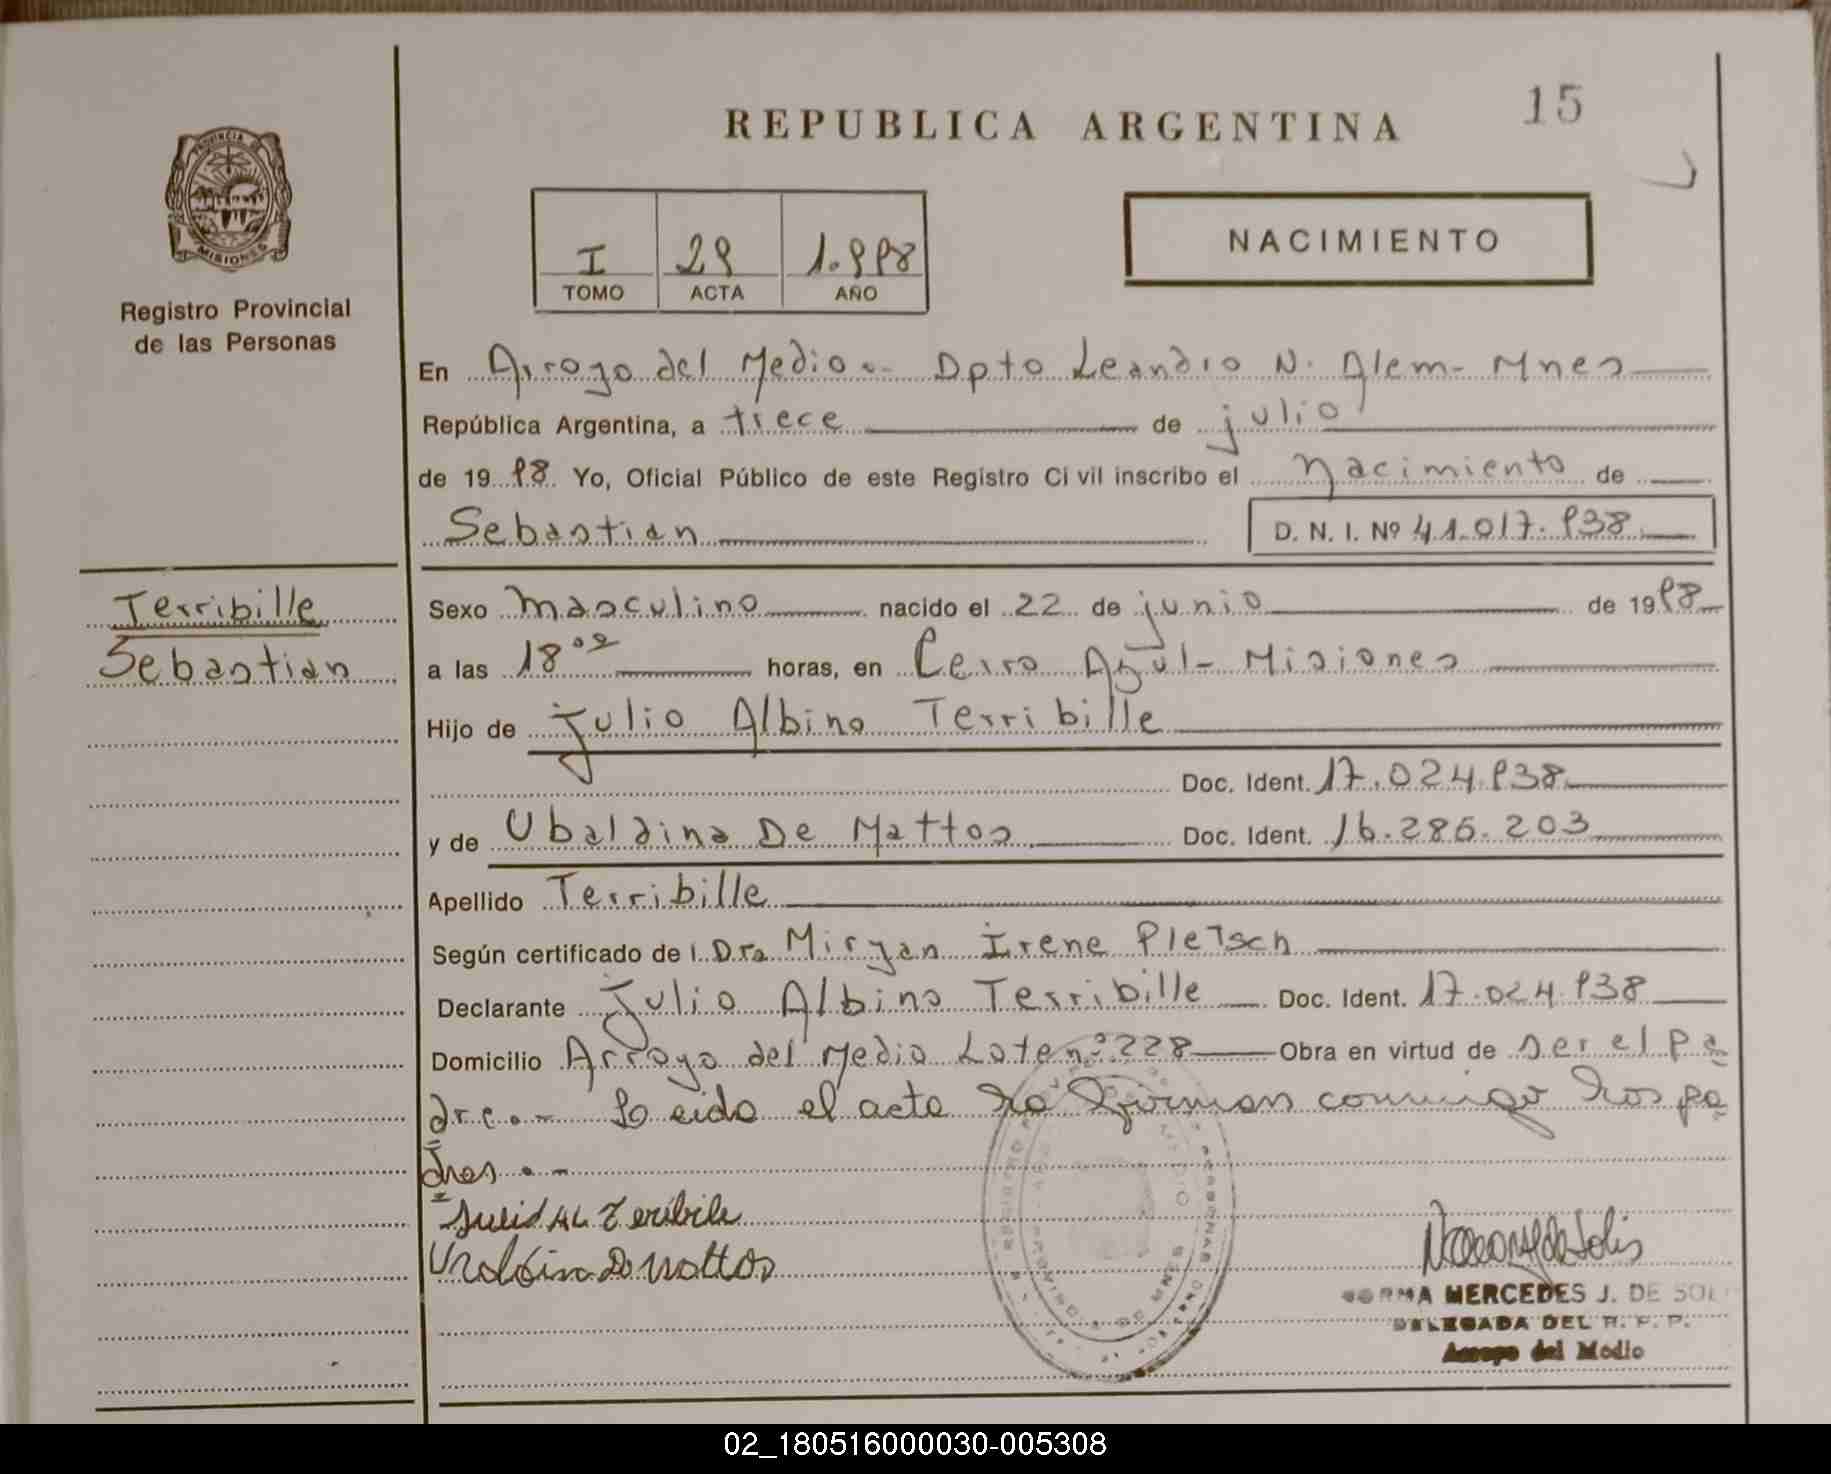 15
REPUBLICA ARGENTINA
PROVINCIA DE
MISIONES
Registro Provincial
de las Personas
NACIMIENTO
I 29 1.998
TOMO ACTA AÑO
En Arroyo del Medio - Dpto Leandro N. Alem - Mnes
República Argentina, a trece de julio
de 19 98 Yo, Oficial Público de este Registro Civil inscribo el nacimiento de
Sebastian D. N. I. Nº 41.017.938
Terribille
Sebastian
Sexo masculino nacido el 22 de junio de 1998
a las 18 horas, en Cerro Azul - Misiones
Hijo de Julio Albino Terribille
Doc. Ident. 17.024.938
y de Ubaldina De Mattos Doc. Ident. 16.286.203
Apellido Terribille
Según certificado de l Dra Miryan Irene Pletsch
Declarante Julio Albino Terribille Doc. Ident. 17.024.938
Domicilio Arroyo del Medio Lote nº 228 Obra en virtud de ser el pa
dre.- Leida el acta la firman conmigo los pa
dres.-
NORMA MERCEDES J. DE SOLI
DELEGADA DEL R. P. P.
Arroyo del Medio
02_180516000030-005308